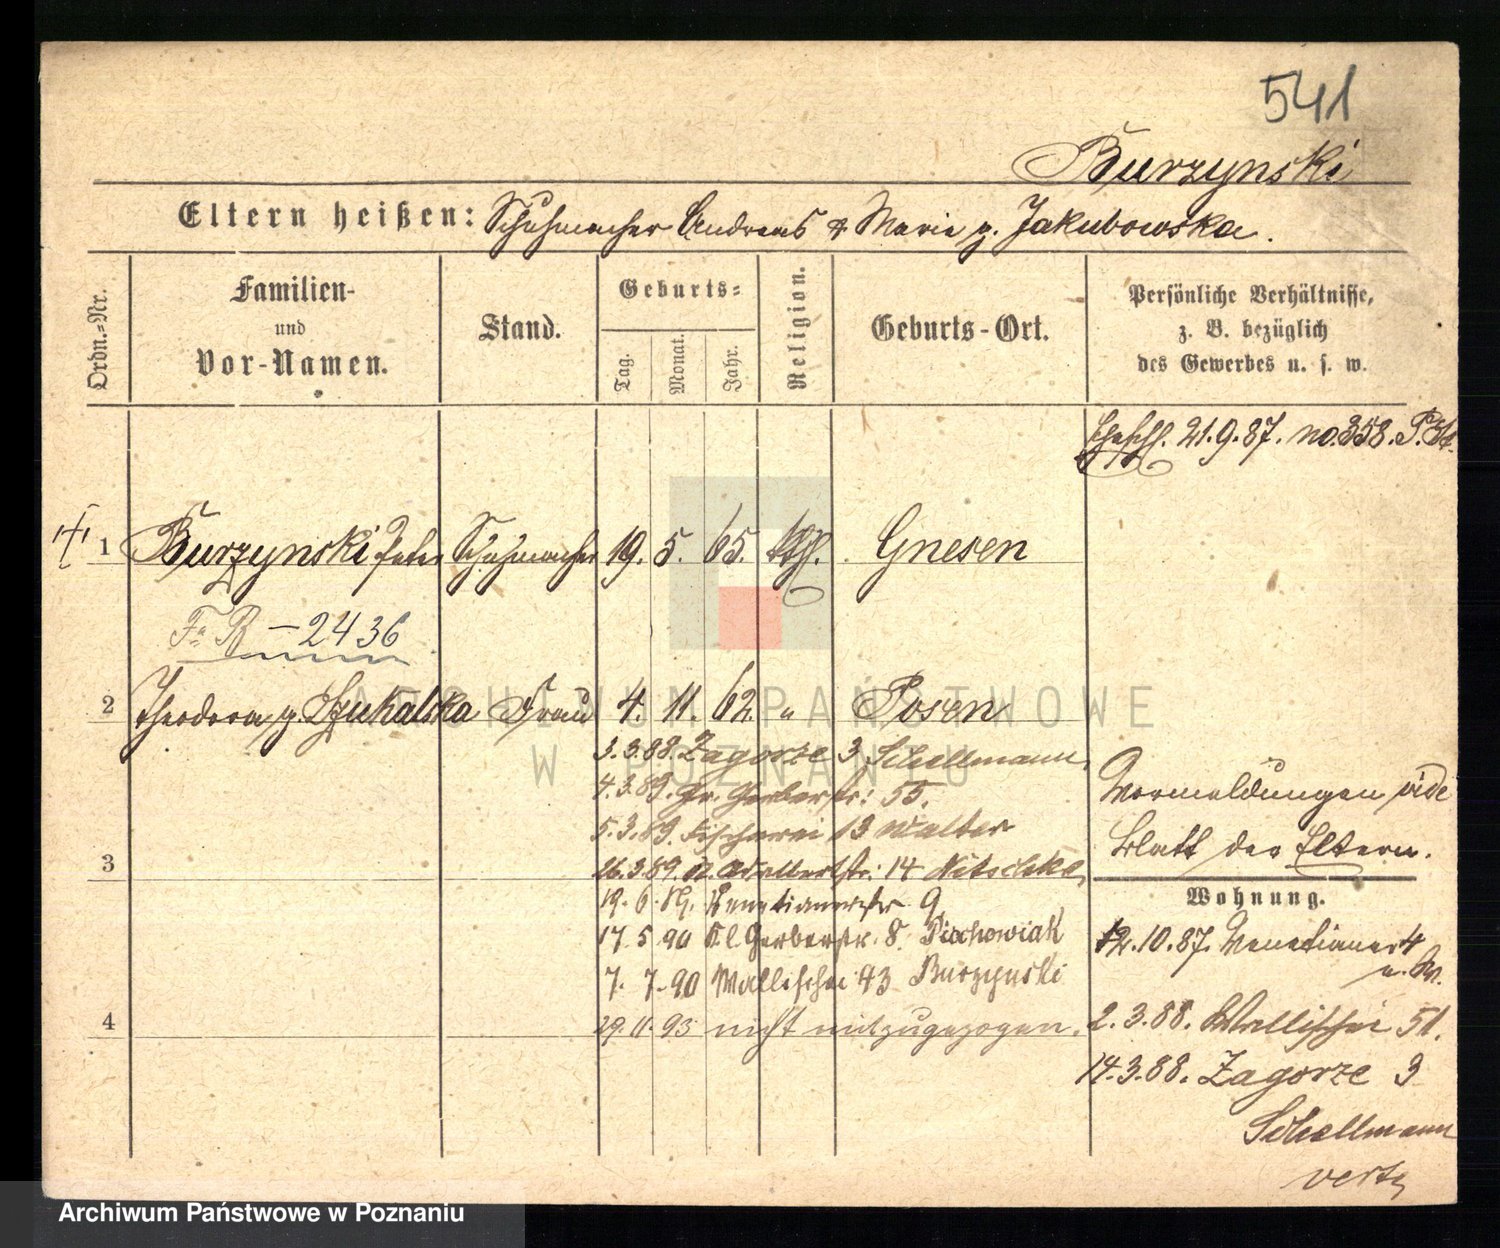 541
Burzynski
Eltern heißen: Schuhmacher Andreas & Marie g. Jakubowska.
Ordn.=Nr.
Familien-
und
Vor-Namen.
Stand.
Geburts=
Tag.
Monat.
Jahr.
Religion.
Geburts-Ort.
Persönliche Verhältnisse,
z. B. bezüglich
des Gewerbes u. s. w.
Eheschl. 21.9.87. no. 358. P. St.
1 Burzynski Peter Schuhmacher 19. 5. 65. kth. Gnesen
Fa R - 2436
2 Theodora g. Szukalska Frau 4. 11. 62. " Posen
3.3.88. Zagorze 3 Schellmann,
4.3.89. Gr. Gerberstr: 55.
5.3.89. Fischerei 13 Walter
3 26.3.89. Adalbertstr: 14 Nitschke,
19. 6. 89. Venetianerstr 9
17. 5 90 Kl. Gerberstr. 8. Piochowiak
7. 7. 90 Wallischei 93 Burzynski
4 29. 11. 93 nicht mitzugezogen.
Vormeldungen vide
Blatt der Eltern.
Wohnung.
12.10.87. Venetianer 4
2.3.88. Wallischei 51.
14.3.88. Zagorze 3
Schellmann
verte
ARCHIWUM PAŃSTWOWE
W POZNANIU
Archiwum Państwowe w Poznaniu